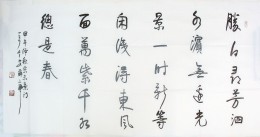 勝日尋芳泗
水濱無邊光
景一時新等
閒識得東風
面萬紫千紅
總是春